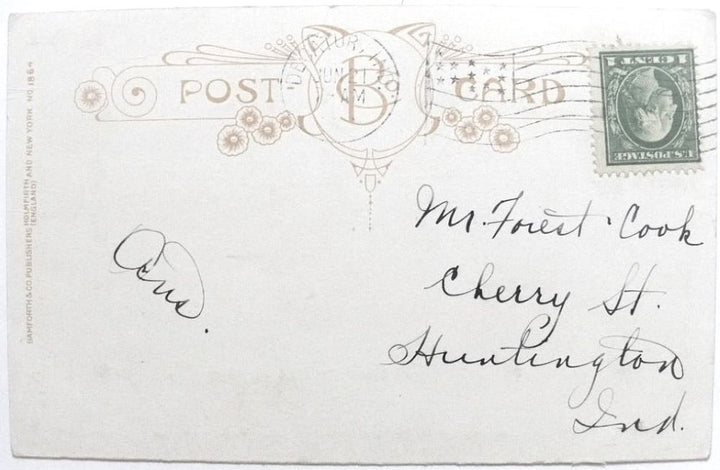 POST B CARD
DECATUR, IND.
JUN 21
M
1 CENT 1
U.S. POSTAGE
BAMFORTH & CO. PUBLISHERS HOLMFIRTH AND NEW YORK. NO 1864
(ENGLAND)
Mr. Forest Cook
Cherry St.
Huntington
Ind.
Ans.